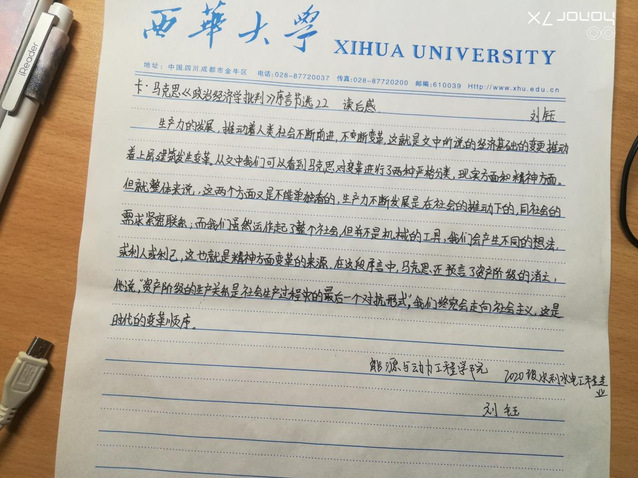 honor 7X
iReader
西華大学
XIHUA UNIVERSITY
地址：中国.四川.成都市金牛区 电话:028-87720037 传真:028-87720200 邮编:610039 Http://www.xhu.edu.cn
卡·马克思《政治经济学批判》序言节选22 读后感
刘钰
生产力的发展，推动着人类社会不断前进，不断变革，这就是文中所说的经济基础的变更推动
着上层建筑发生变革。从文中我们可以看到马克思对变革进行了两种严格分类，现实方面和精神方面。
但就整体来说，这两个方面又是不能单独看的，生产力不断发展是在社会的推动下的，同社会的
需求紧密联系；而我们虽然运作起了整个社会，但并不是机械的工具，我们会产生不同的想法，
或利人或利己，这也就是精神方面变革的来源。在这段序言中，马克思还预言了资产阶级的消亡，
他说，“资产阶级的生产关系是社会生产过程中的最后一个对抗形式”，我们终究会走向社会主义，这是
时代的变革顺序。
能源与动力工程学院 2020级水利水电工程专
业
刘钰